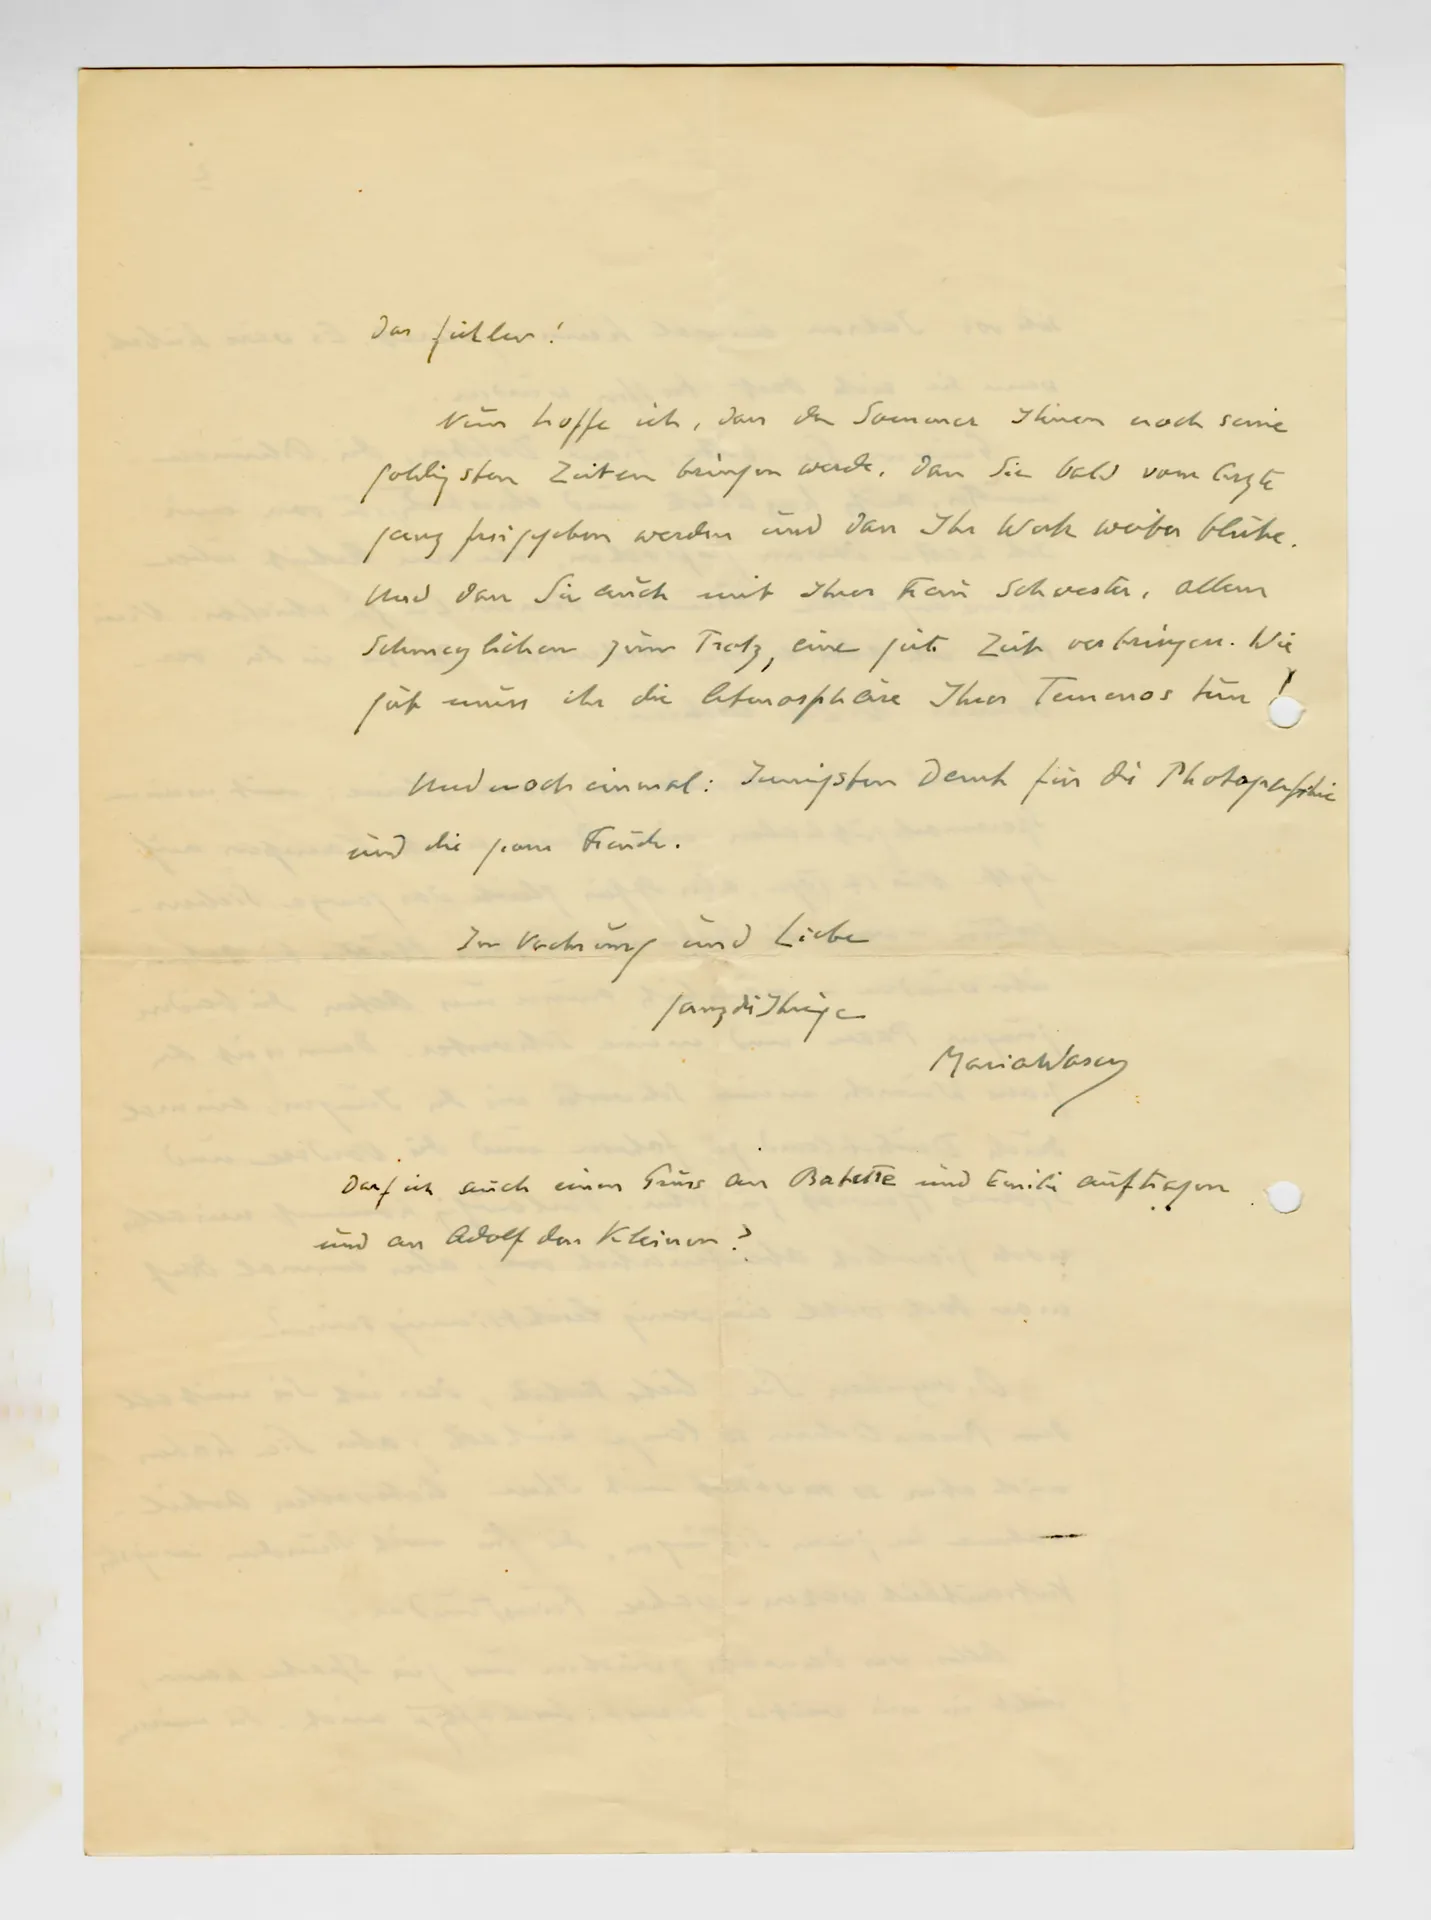 das fühlen!
Nun hoffe ich, dass der Sommer Ihnen noch seine
goldigsten Zeiten bringen werde, dass Sie bald vom Arzte
ganz freigegeben werden und dass Ihr Werk weiter blühe.
Und dass Sie auch mit Ihrer Frau Schwester, allem
Schmerzlichen zum Trotz, eine gute Zeit verbringen. Wie
gut muss ihr die Atmosphäre Ihres Temenos tun!
Und noch einmal: Innigsten Dank für die Photographie
und die grosse Freude.
In Verehrung und Liebe
ganz die Ihrige
Maria Waser
Darf ich auch einen Gruss an Babette und Emilie auftragen
und an Adolf den Kleinen?